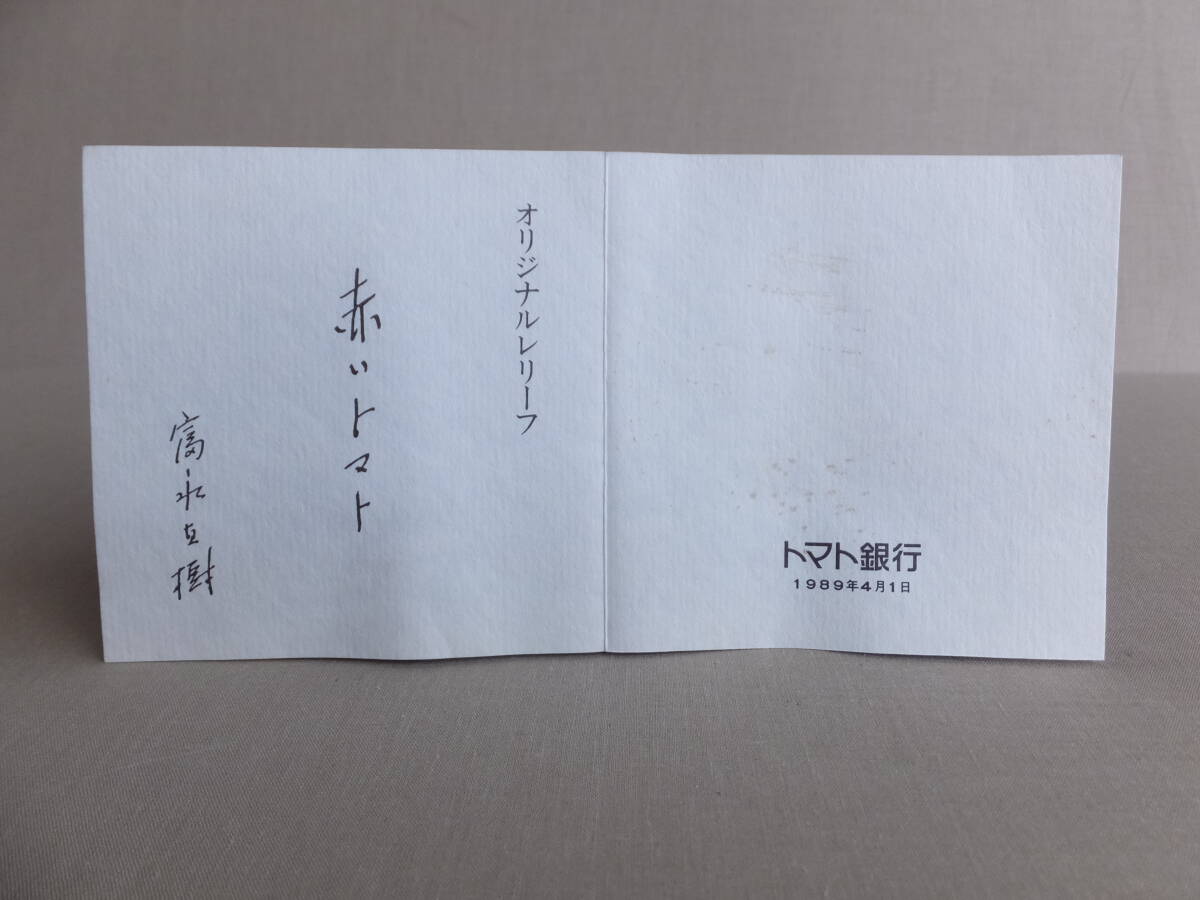 オリジナルレリーフ
赤いトマト
富永直樹
トマト銀行
1989年4月1日